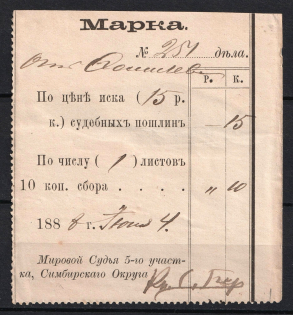 Марка.
№ 251 дѣла.
отъ
Р. К.
По цѣнѣ иска (15 р.
к.) судебныхъ пошлинъ — 15
По числу (1) листовъ
10 коп. сбора . . . . „ 10
1888 г. Іюня 4.
Мировой Судья 5-го участ-
ка, Симбирскаго Округа